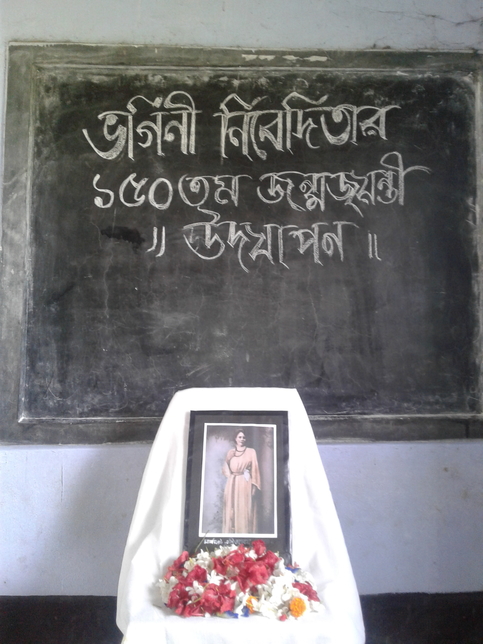 ভগিনী নিবেদিতার
১৫০তম জন্মজয়ন্তী
॥ উদযাপন ॥